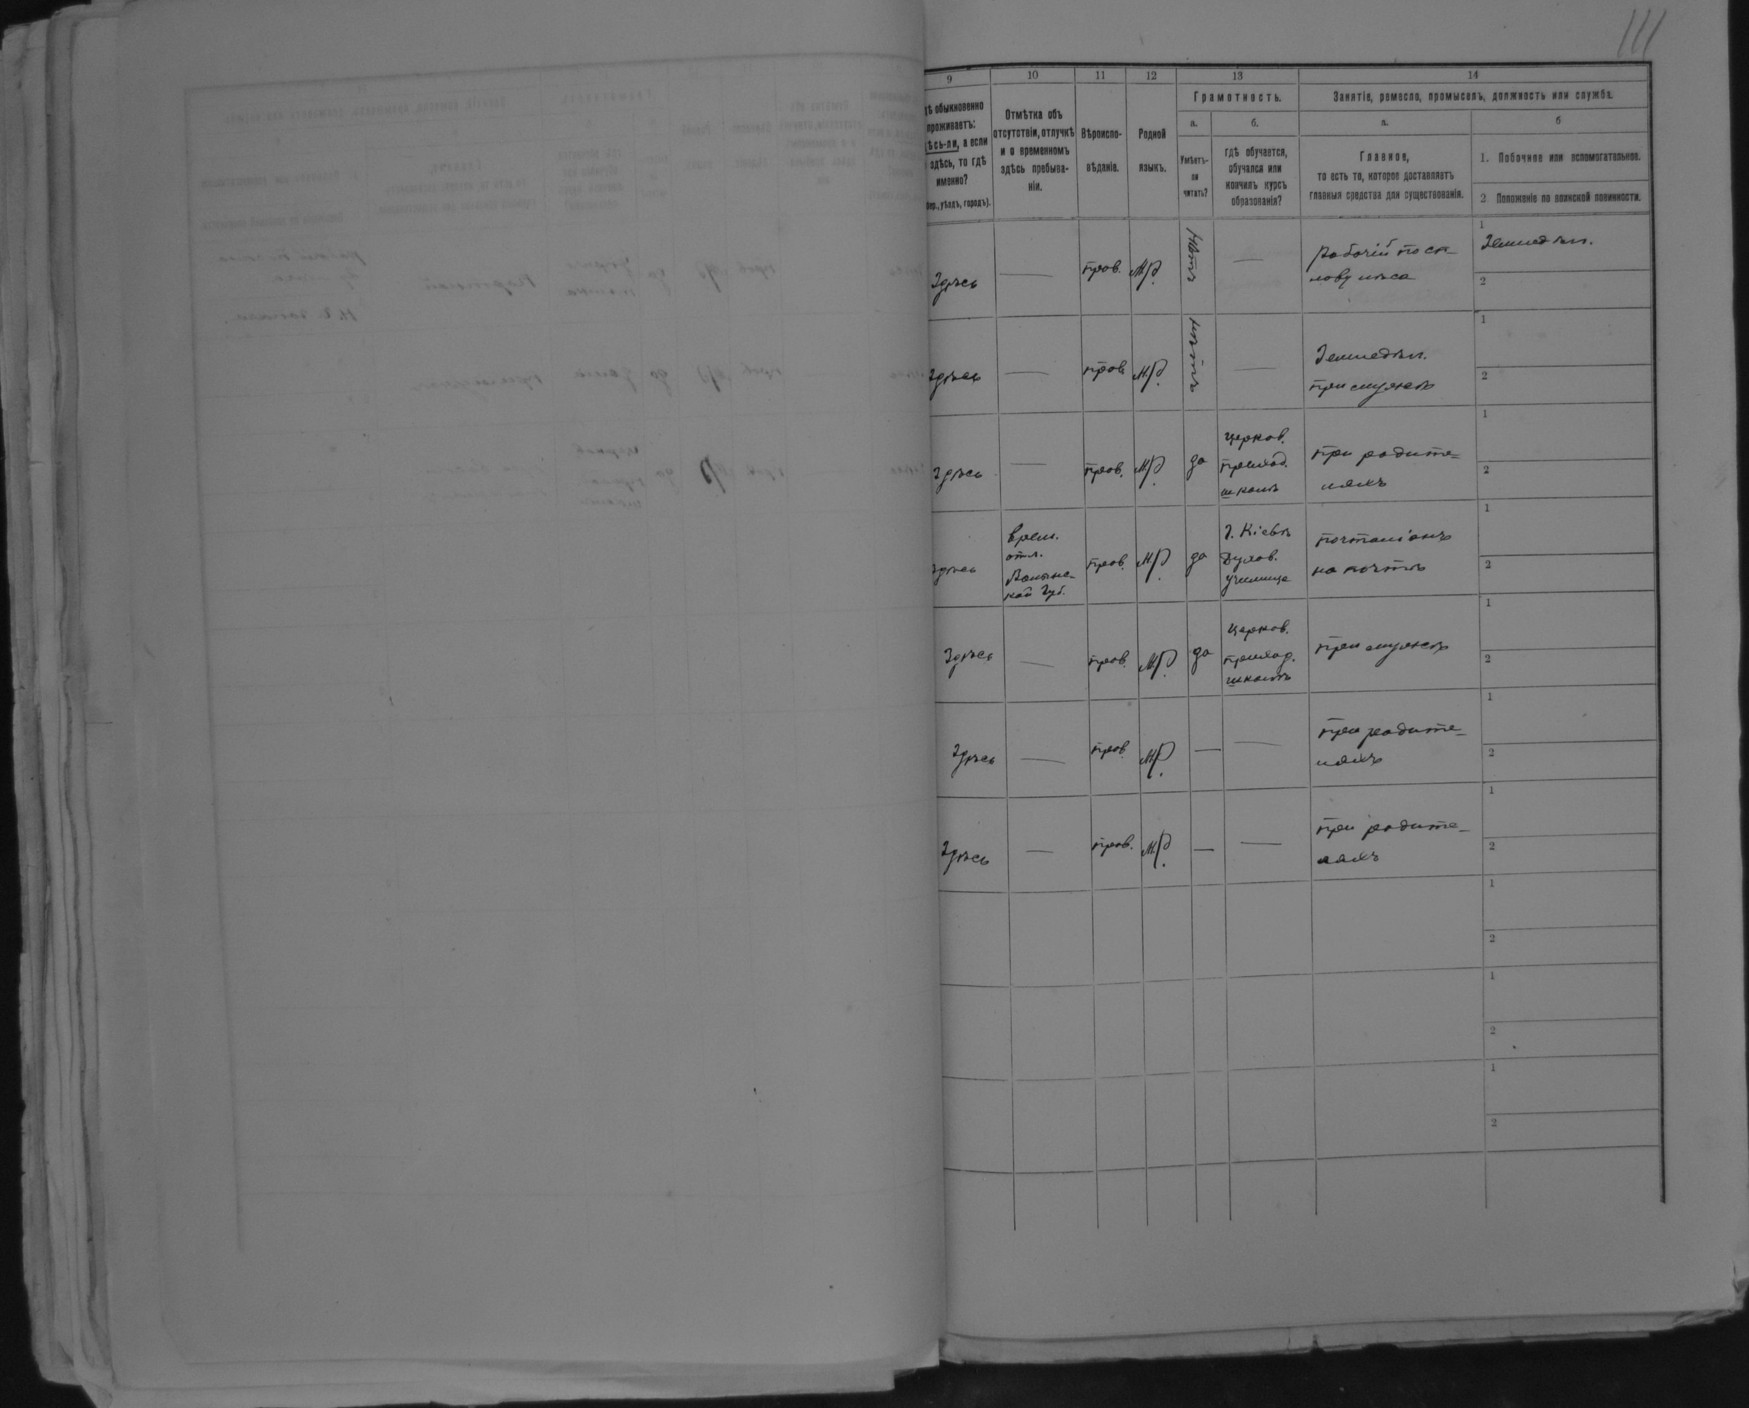 111
9 10 11 12 13 14
обыкновенно
проживаетъ:
а если
здѣсь, то гдѣ
именно?
уѣздъ, городъ).
Отмѣтка объ
отсутствіи, отлучкѣ
и о временномъ
здѣсь пребыва-
ніи.
Вѣроиспо-
вѣданіе.
Родной
языкъ.
Грамотность.
а.
Умѣетъ-
ли
читать?
б.
гдѣ обучается,
обучался или
кончилъ курсъ
образованія?
Занятіе, ремесло, промыселъ, должность или служба.
а.
Главное,
то есть то, которое доставляетъ
главныя средства для существованія.
б
1. Побочное или вспомогательное.
2 Положеніе по воинской повинности.
Здѣсь — пров. М.Р. нѣтъ — Рабочій по
лѣса
1 Земледѣл.
2
Здѣсь — пров. М.Р. нѣтъ — Земледѣл.
при мужѣ
1
2
Здѣсь — пров. М.Р. да
церков.
приход.
школѣ
при родите=
ляхъ
1
2
Здѣсь
Врем.
отл.
Волынс-
кой Губ.
пров. М.Р. да
г. Кіевѣ
Духов.
училище
почталіонъ
на почтѣ
1
2
Здѣсь — пров. М.Р. да
церков.
приход.
школѣ
при мужѣ
1
2
Здѣсь — пров. М.Р. — —
при родите-
ляхъ
1
2
Здѣсь — пров. М.Р. — —
при родите-
ляхъ
1
2
1
2
1
2
1
2